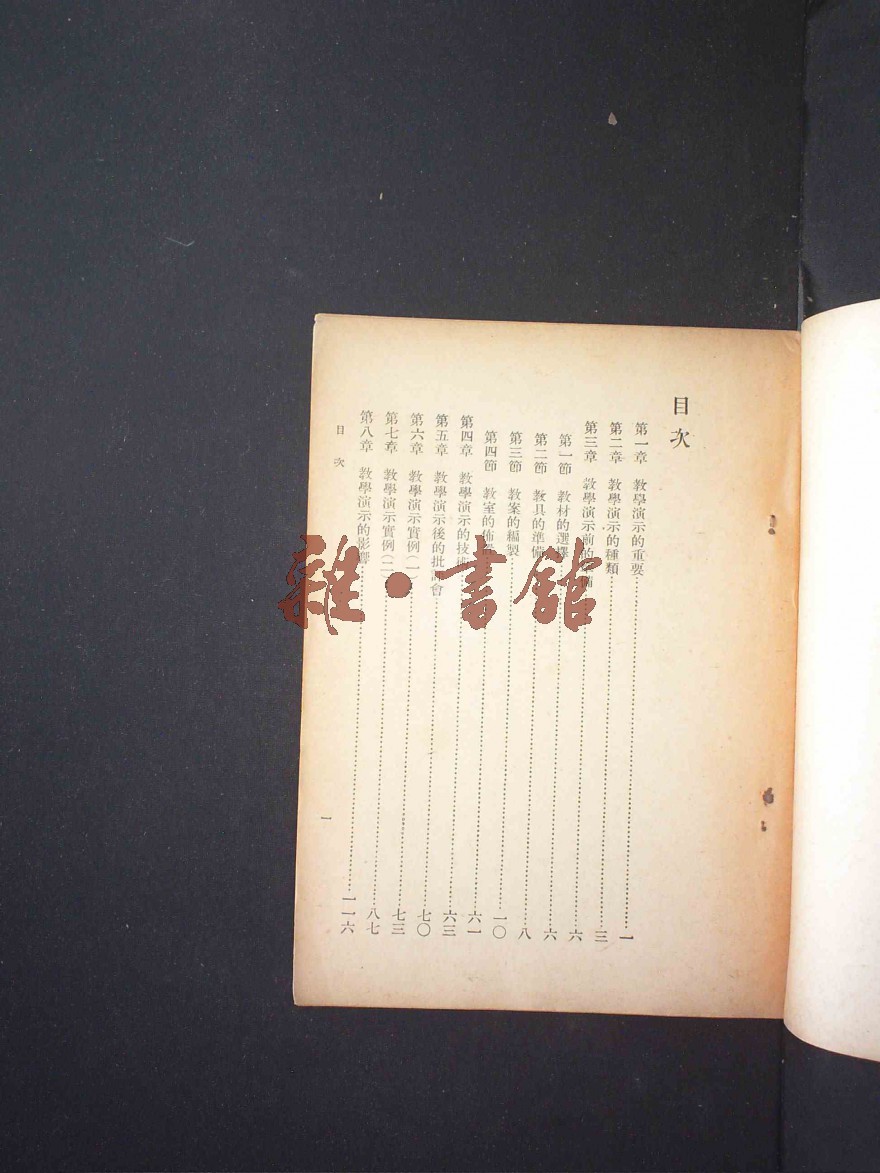 目次
第一章 教學演示的重要……一
第二章 教學演示的種類……三
第三章 教學演示前的備……六
第一節 教材的選擇……六
第二節 教具的準備……八
第三節 教案的編製……一〇
第四節 教室的佈……六一
第四章 教學演示的技術……六三
第五章 教學演示後的批會……七〇
第六章 教學演示實例(一)……七三
第七章 教學演示實例(二)……八七
第八章 教學演示的影響……一一六
目次
一
雜・書館